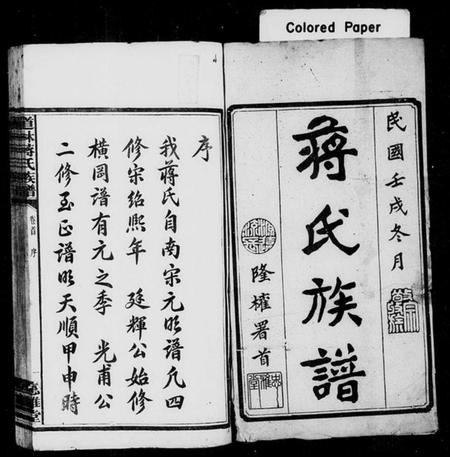 Colored Paper
民國壬戌冬月
蔣氏族譜
隆權署首
序
我蔣氏自南宋元明譜凡四
修宋紹熙年 廷輝公始修
橫岡譜有元之季 光甫公
二修至正譜明天順甲申時
道林蔣氏族譜
卷首 序